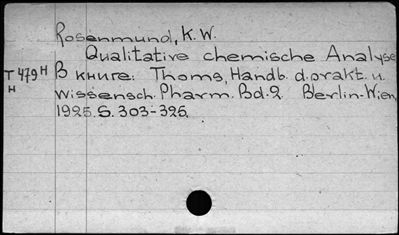 Rosenmund, K.W.
Qualitative chemische Analyse
T 479 H В книге: Thoms, Handb. d. prakt. u.
H
wissensch. Pharm. Bd. 2 Berlin-Wien,
1925. S. 303-325.